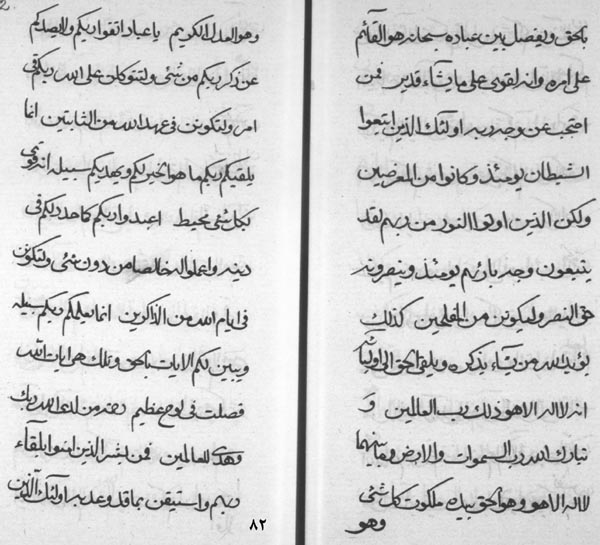 بالحق ويفصل بين عباده سبحانه هو القآئم
على امره وانه لقوى على ما يشآء قدير فمن
احتجب عن وجه ربه اولئك الذين اتبعوا
الشيطان يومئذ وكانوا من المعرضين
ولكن الذين اوتوا النور من ربهم لقد
يتبعون وجه بارئهم يومئذ وينصرونه
حق النصر وليكونن من المخلصين كذلك
يؤيد الله من يشآء بذكره ويلقى الحق الى
انه لا اله الا هو ذلك رب العالمين و
تبارك الله رب السموات والارض وما بينهما
لا اله الا هو وهو الحق بيده ملكوت كل شئ
وهو
وهو العدل الكريم يا عباد اتقوا ربكم ولا يصدكم
عن ذكر ربكم من شئ ولتتوكلن على الله ربكم فى
امر ولتكونن فى عهد الله من الثابتين انما
يلقيكم ربكم ما هو الخير لكم ويهديكم سبيله انه
بكل شئ محيط اعبدوا ربكم كما هديكم فى
دينه واعملوا له خالصا من دون شئ ولتكونن
فى ايام الله من الذاكرين انما يعلمكم ربكم سبيله
ويبين لكم الايات بالحق وتلك هى ايات الله
فصلت فى لوح عظيم رحمة من لدى الله ربك
وهدى للعالمين فمن الذين امنوا بلقآء
ربهم واستيقن بما قد وعد به اولئك الذين
٨٢